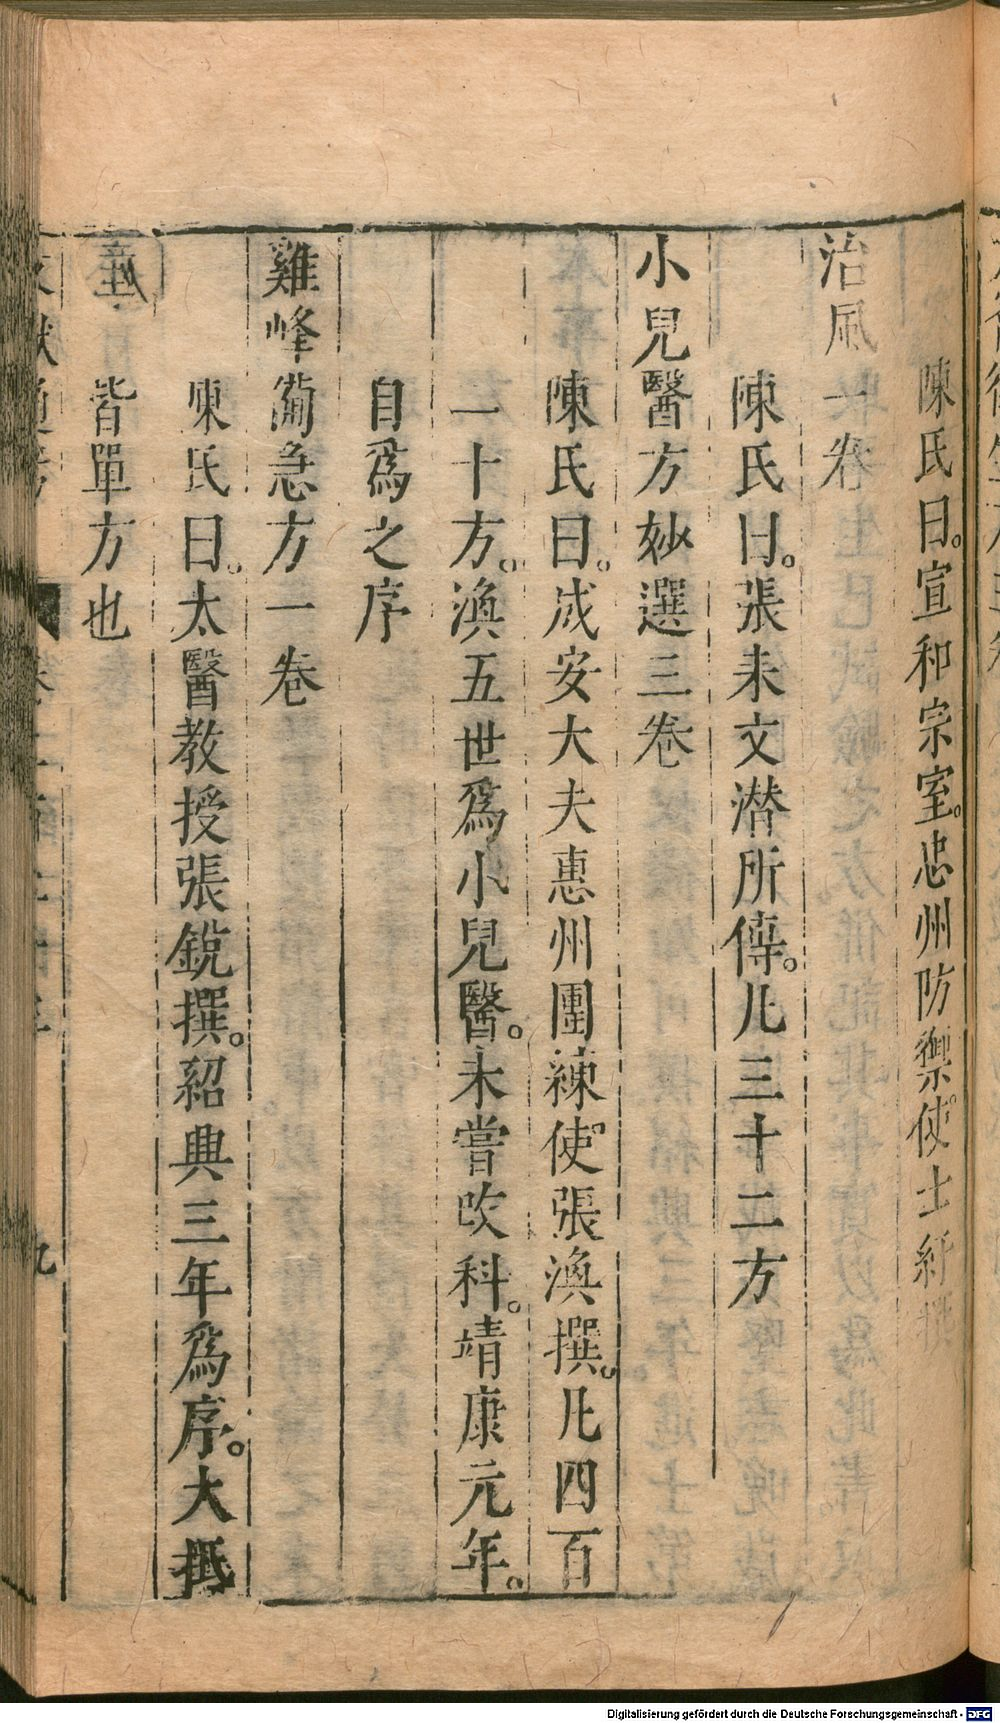 陳氏曰。宣和宗室。忠州防禦使。士紆撰
治風一卷
陳氏曰。張耒文潜所傳。凡三十二方
小兒醫方妙選三卷
陳氏曰。成安大夫惠州團練使。張渙撰。凡四百
一十方。渙五世爲小兒醫。未嘗改科。靖康元年。
自爲之序
雞峰備急方一卷
陳氏曰。太醫教授張銳撰。紹興三年爲序。大抵
皆單方也
文獻通考
九
Digitalisierung gefördert durch die Deutsche Forschungsgemeinschaft - DFG